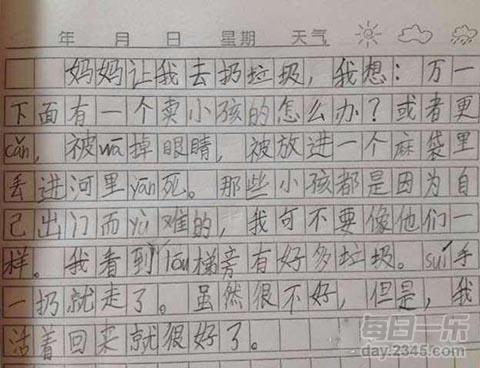 年 月 日 星期 天气
妈妈让我去扔垃圾，我想：万一
下面有一个卖小孩的怎么办？或者更
cǎn，被wā掉眼睛，被放进一个麻袋里
丢进河里yān死。那些小孩都是因为自
己出门而yù难的，我可不要像他们一
样。我看到lóu梯旁有好多垃圾。suí手
一扔就走了。虽然很不好，但是，我
活着回来就很好了。
每日一乐
day.2345.com